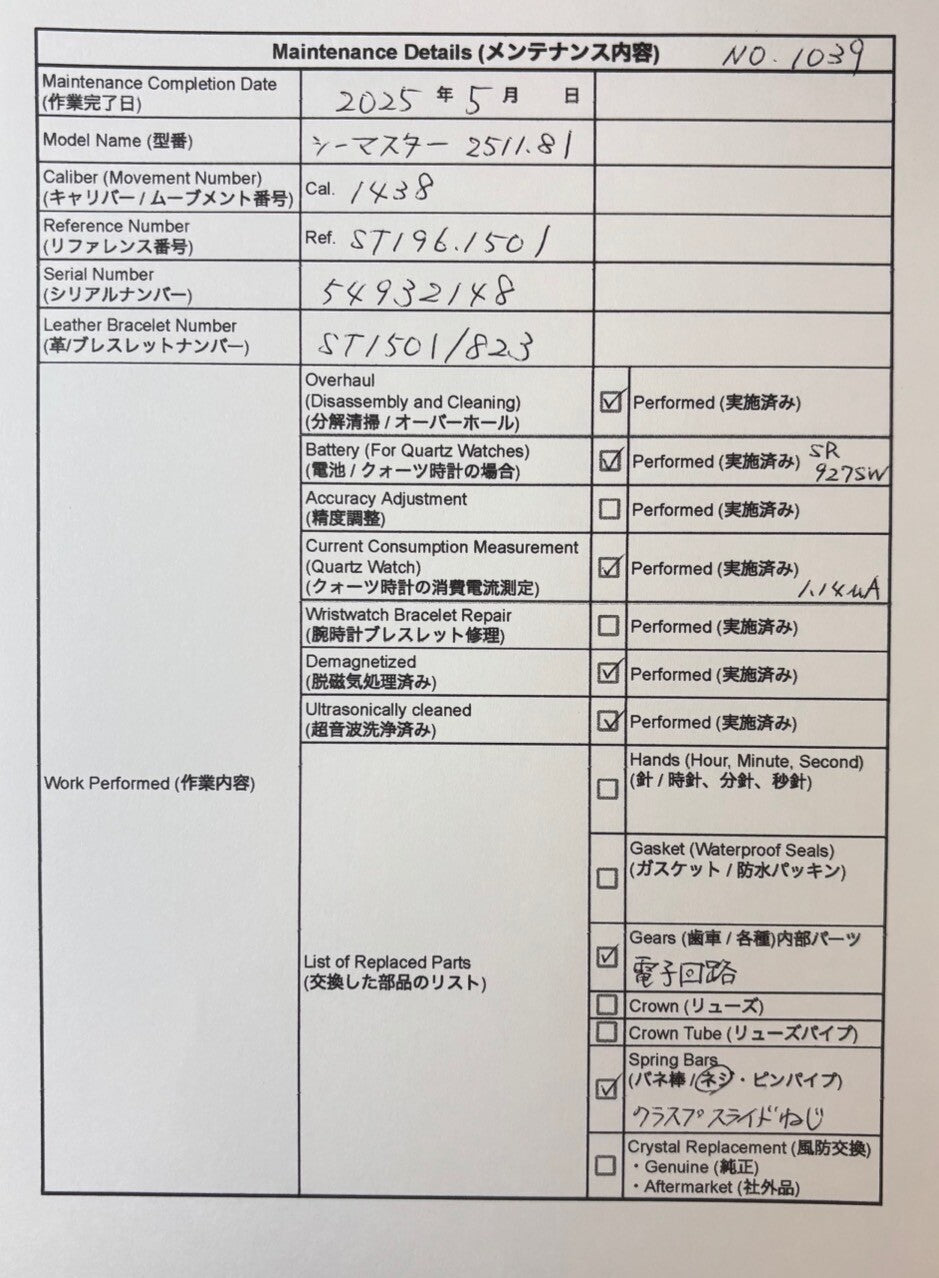 Maintenance Details (メンテナンス内容) NO. 1039
Maintenance Completion Date
(作業完了日)
2025 年 5 月 日
Model Name (型番)
シーマスター 2511.81
Caliber (Movement Number)
(キャリバー / ムーブメント番号)
Cal. 1438
Reference Number
(リファレンス番号)
Ref. ST196.1501
Serial Number
(シリアルナンバー)
54932148
Leather Bracelet Number
(革/ブレスレットナンバー)
ST1501/823
Work Performed (作業内容)
Overhaul
(Disassembly and Cleaning)
(分解清掃 / オーバーホール)
☑ Performed (実施済み)
Battery (For Quartz Watches)
(電池 / クォーツ時計の場合)
☑ Performed (実施済み) SR
927SW
Accuracy Adjustment
(精度調整)
☐ Performed (実施済み)
Current Consumption Measurement
(Quartz Watch)
(クォーツ時計の消費電流測定)
☑ Performed (実施済み)
1.14μA
Wristwatch Bracelet Repair
(腕時計ブレスレット修理)
☐ Performed (実施済み)
Demagnetized
(脱磁気処理済み)
☑ Performed (実施済み)
Ultrasonically cleaned
(超音波洗浄済み)
☑ Performed (実施済み)
List of Replaced Parts
(交換した部品のリスト)
☐ Hands (Hour, Minute, Second)
(針 / 時針、分針、秒針)
☐ Gasket (Waterproof Seals)
(ガスケット / 防水パッキン)
☑ Gears (歯車 / 各種)内部パーツ
電子回路
☐ Crown (リューズ)
☐ Crown Tube (リューズパイプ)
☑ Spring Bars
(バネ棒 / ネジ・ピンパイプ)
クラスプスライドねじ
☐ Crystal Replacement (風防交換)
・Genuine (純正)
・Aftermarket (社外品)